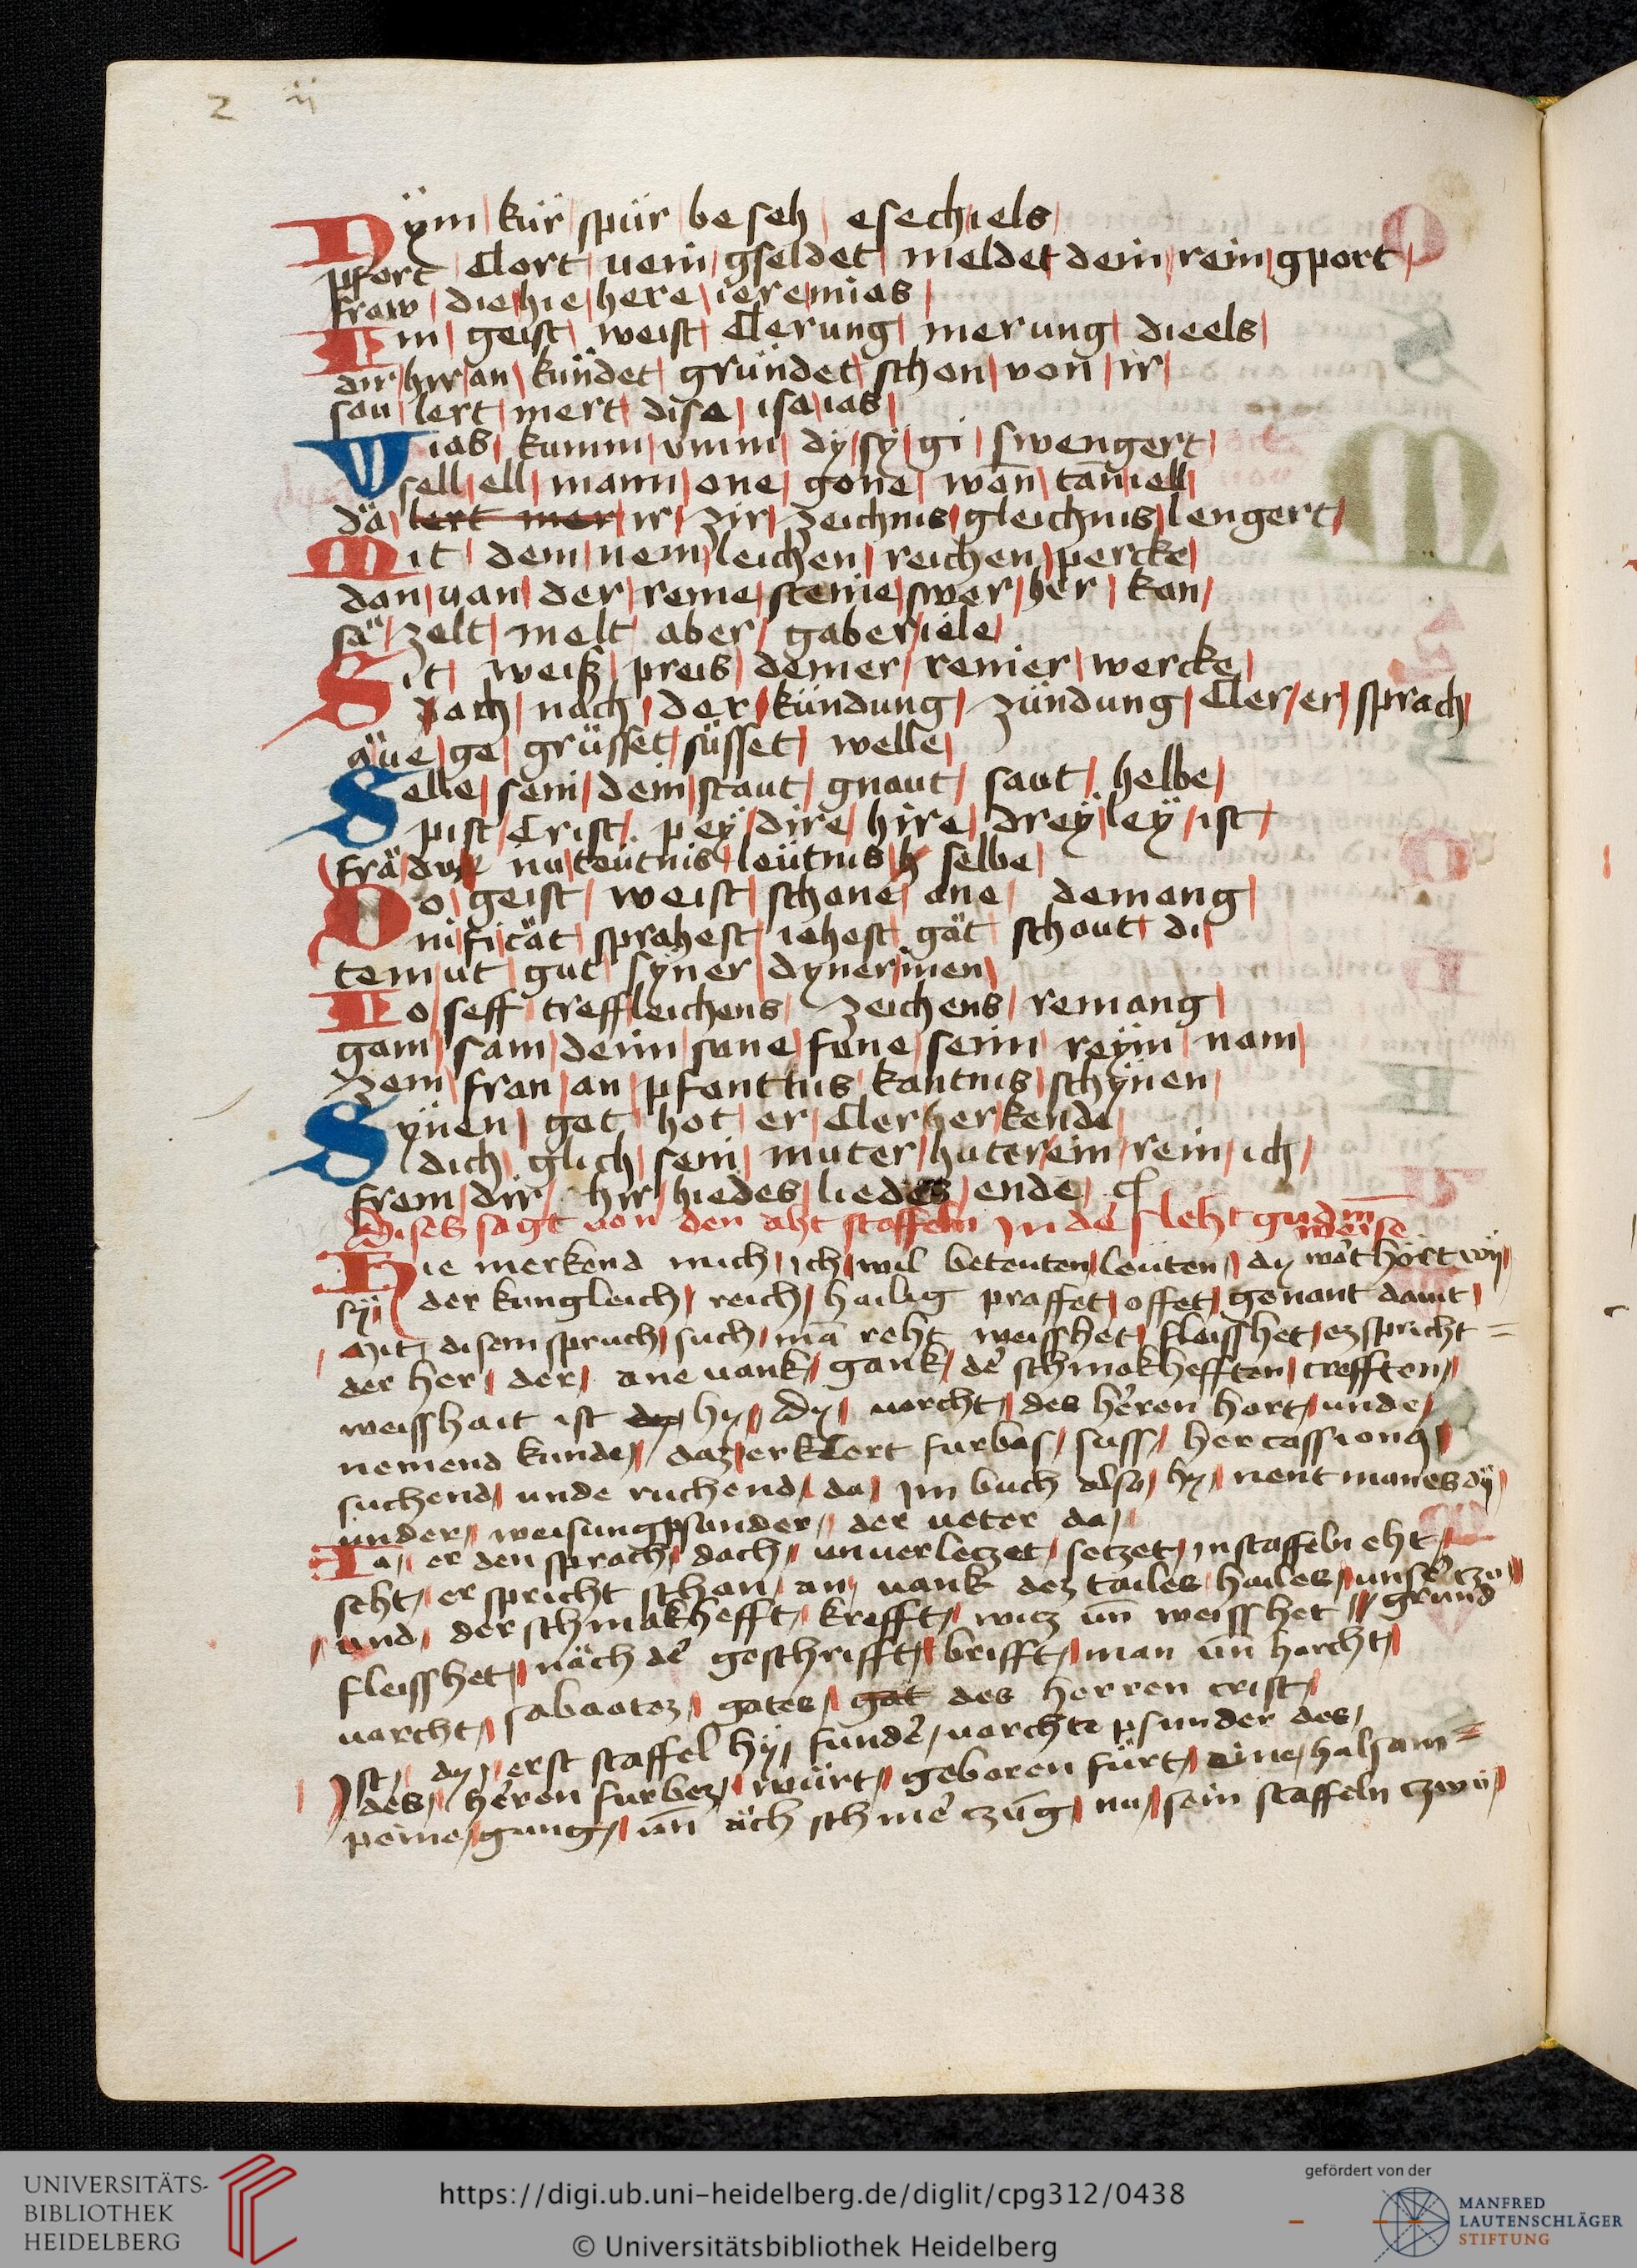 2 ij
Dÿm kür spür beseh esechiels
pfort Clort vein gseldet meldet dein rein gport
fraw die hie here ieremias
Im geist weist Clerung merung dieels
dir hir an kündet gründet schon von ir
sau lert mert disa isaias
Vias kumm vmm dy sy gi swengert
sell ell mann one gone won tanniell
dä lert mer ir zir zeichnis gleichnis lengert
Mit dem nem leichen reichen percke
dan van der reine steine swer her kan
sä zelt melt aber gaberiele
Sit weiß preis demer renier wercke
dach nach der kündung zündung Cler er sprach
aͧue ge grüsset süsset welle
Selle sein dein staut gnaut saut helbe
pist Crist pey dire hire drey ley ist
frä du nu teütnis leütnis selbe
Do geist weist schone one demang
nificat sprahest iehest gät schout dir
temut gut syner dyner inen
Io seff treffleichens zeichens remang
gam sam denn sune fune seim reÿm nam
zem fran an pfanttus kantnis schynen
Sÿnen got hot er Cler her kende
dich glich sein muter huter ein rein ich
frem dir hir hiedes liedes ende
Dises sagt von den aht staffeln In de sleht guldin
weise
Hie merkend mich ich wil betenten leüten dy wört hört wÿ
sÿ der kungleich reich hailig praffet offet genant damt
Mit disem spruch such mā reht weisshet fleisshet ez spricht =
der her der ane vank gank de schmakhefften crefften
weisshait ist hy dy vorcht des heren hort unde
nemend kunde daz erklert furbas suss her cassiong
suchend unde ruchend da im buch also hy nent man es dÿ
under weisung psunder der veter da
Ia er den sprach dach unverleczet seczet in staffeln eht
seht er spricht schon an vank dez tailes hailes unser czu
und der schmakhefft krefft wicz un weisshet grund
fleisshet näch de geschrifft brifft man un horcht
vorcht sabaotez gotes got des herren crist
Ist dy erst staffel hy funde vorcht psunder des
des heren furbez würt geboren fürt aine halsam =
peine gung un äch schme czung nu sein staffeln czwü
UNIVERSITÄTS-
BIBLIOTHEK
HEIDELBERG
https://digi.ub.uni-heidelberg.de/diglit/cpg312/0438
© Universitätsbibliothek Heidelberg
gefördert von der
MANFRED
LAUTENSCHLÄGER
STIFTUNG